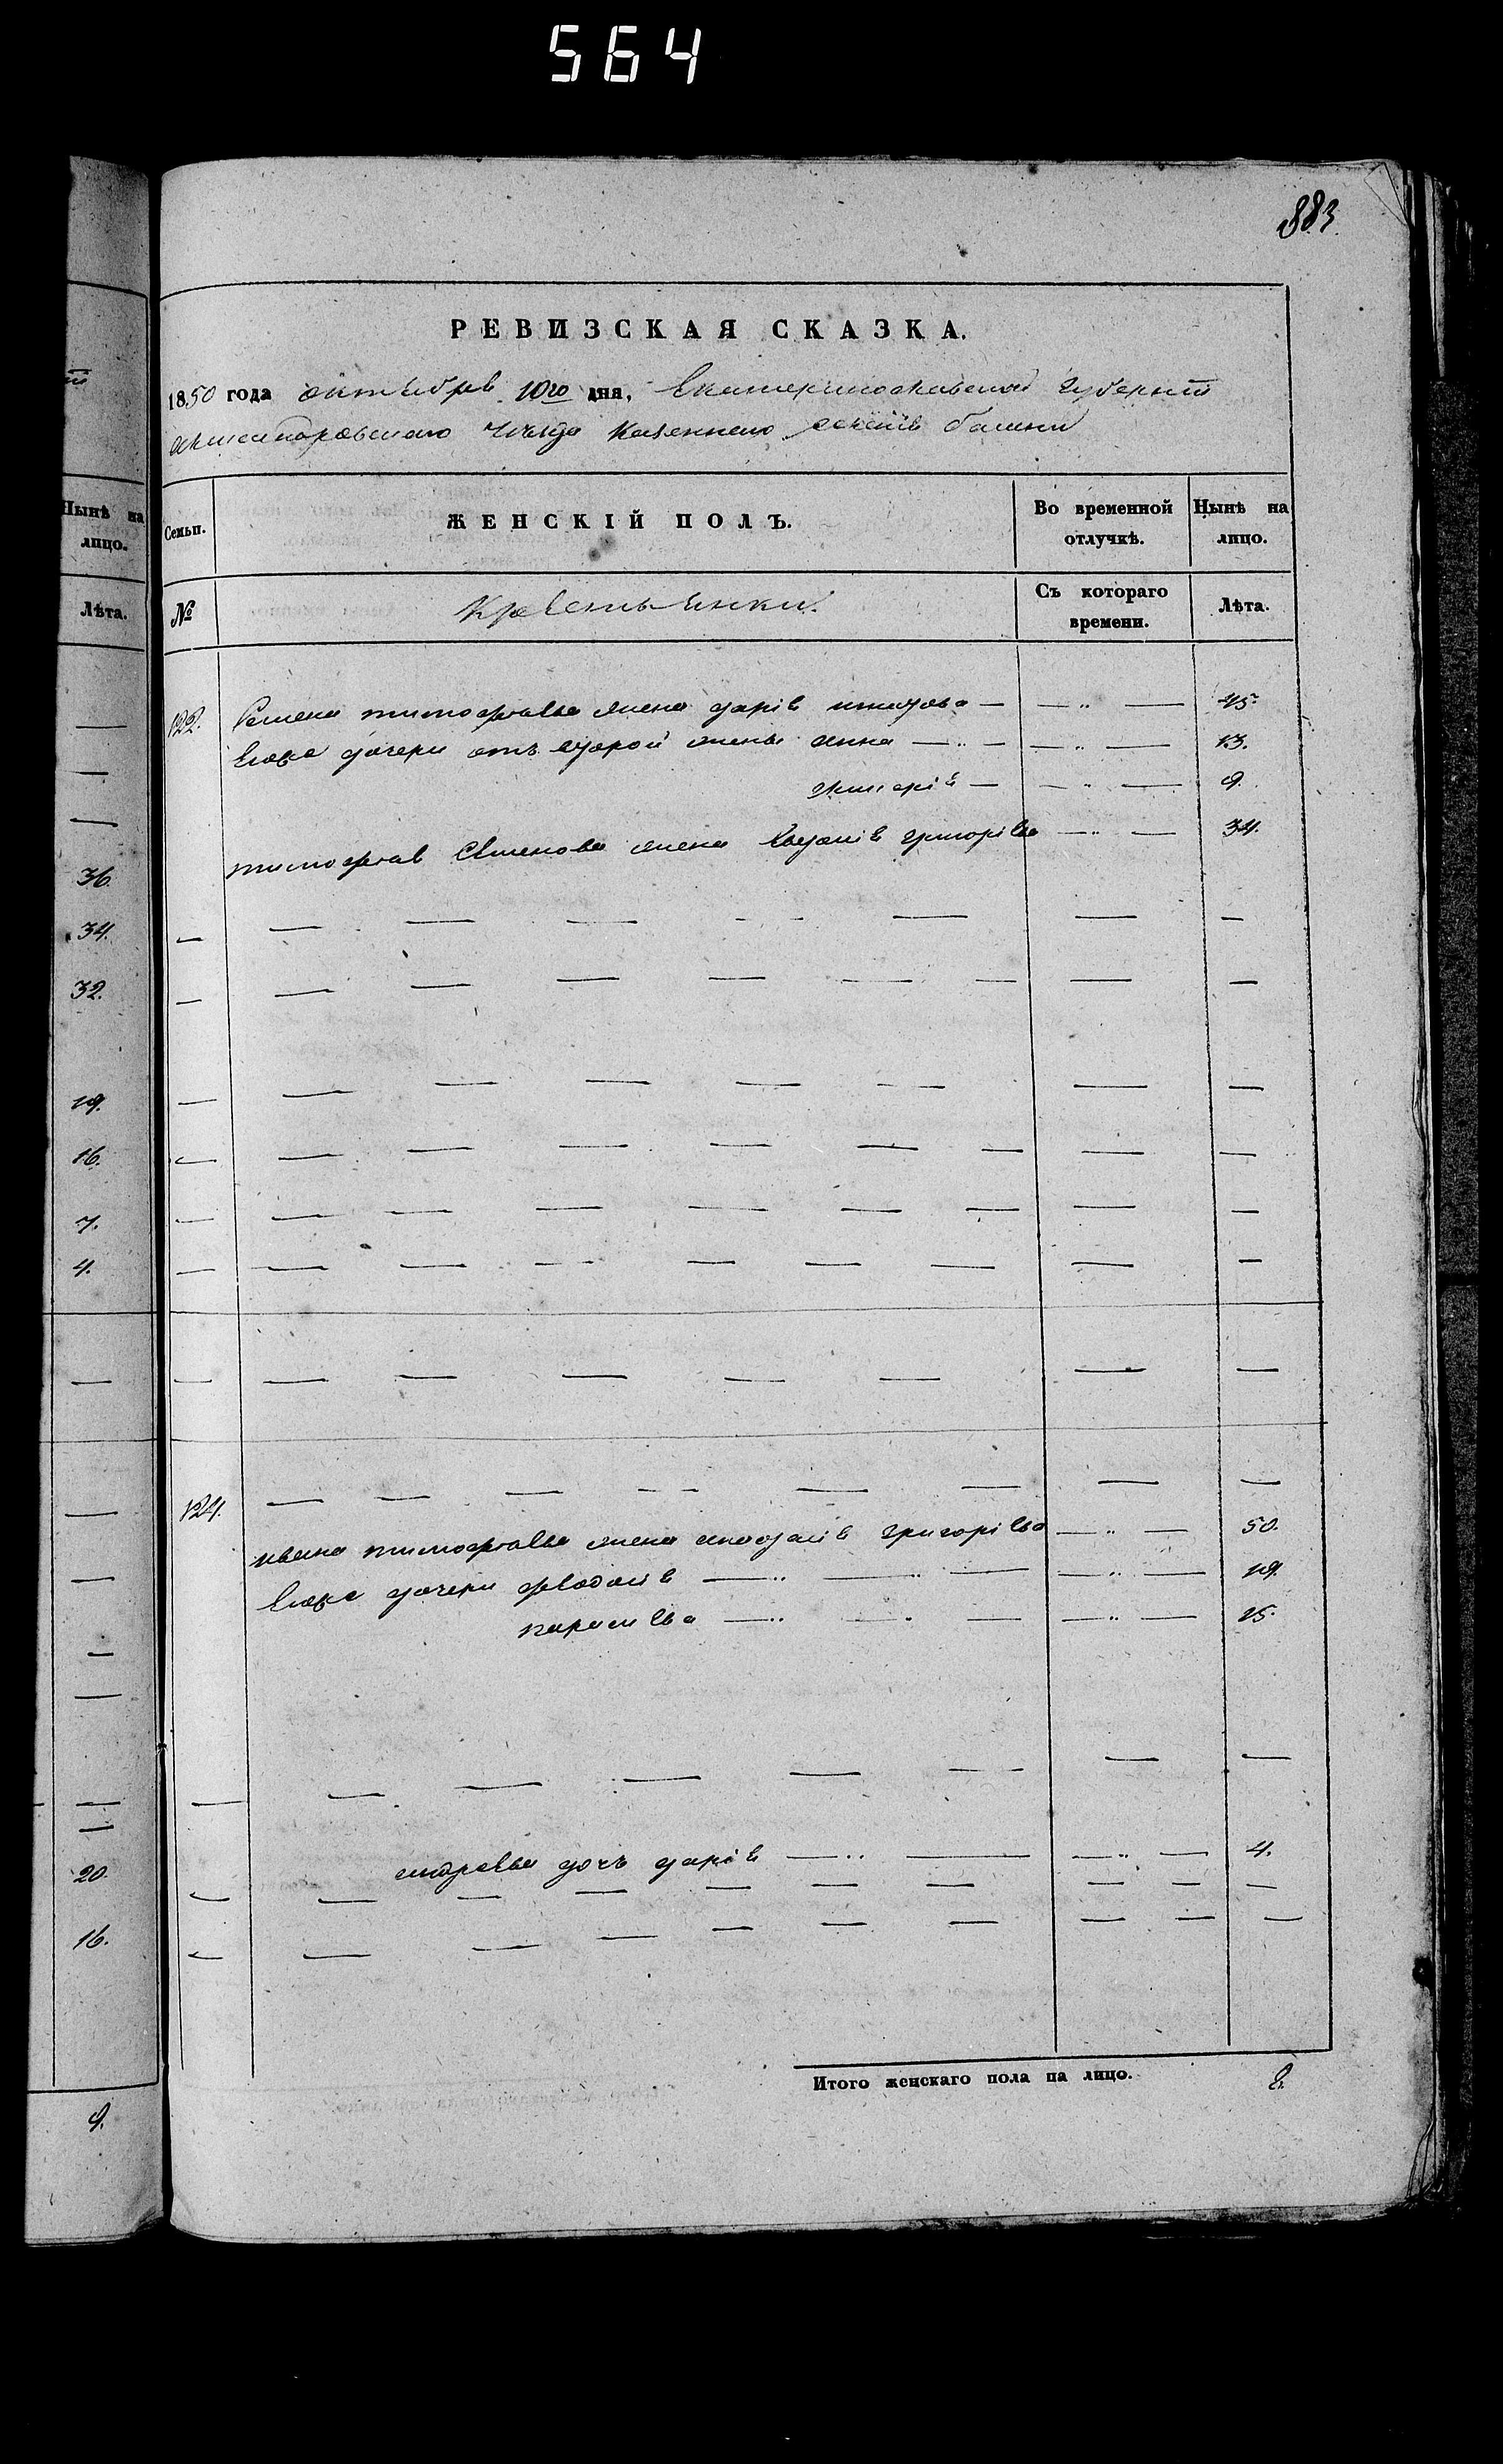 564
883.
РЕВИЗСКАЯ СКАЗКА.
1850 года октября 10го дня, Екатеринославской Губернии
Александровского Уезда Казенного
Нынѣ на лицо.
Семьи.
ЖЕНСКІЙ ПОЛЪ.
Во временной отлучкѣ.
Нынѣ на лицо.
Лѣта.
№
Крестьянки.
Съ котораго времени.
Лѣта.
122. Семена тимофѣева жена дарія игнатова — — „ — 45.
Ево дочери отъ второй жены анна — „ — — „ — 13.
— — „ — 9.
тимофѣя Семенова жена Евдокія григоріева — „ — 34.
36.
34.
32.
19.
16.
7.
4.
124.
ивана тимофѣева жена григоріева — „ — 50.
Ево дочери феодосія — „ — „ — — „ — 19.
парасковья — „ — „ — — „ — 15.
андреева дочь дарія — „ — — „ — 4.
20.
16.
Итого женскаго пола на лицо. 8.
9.